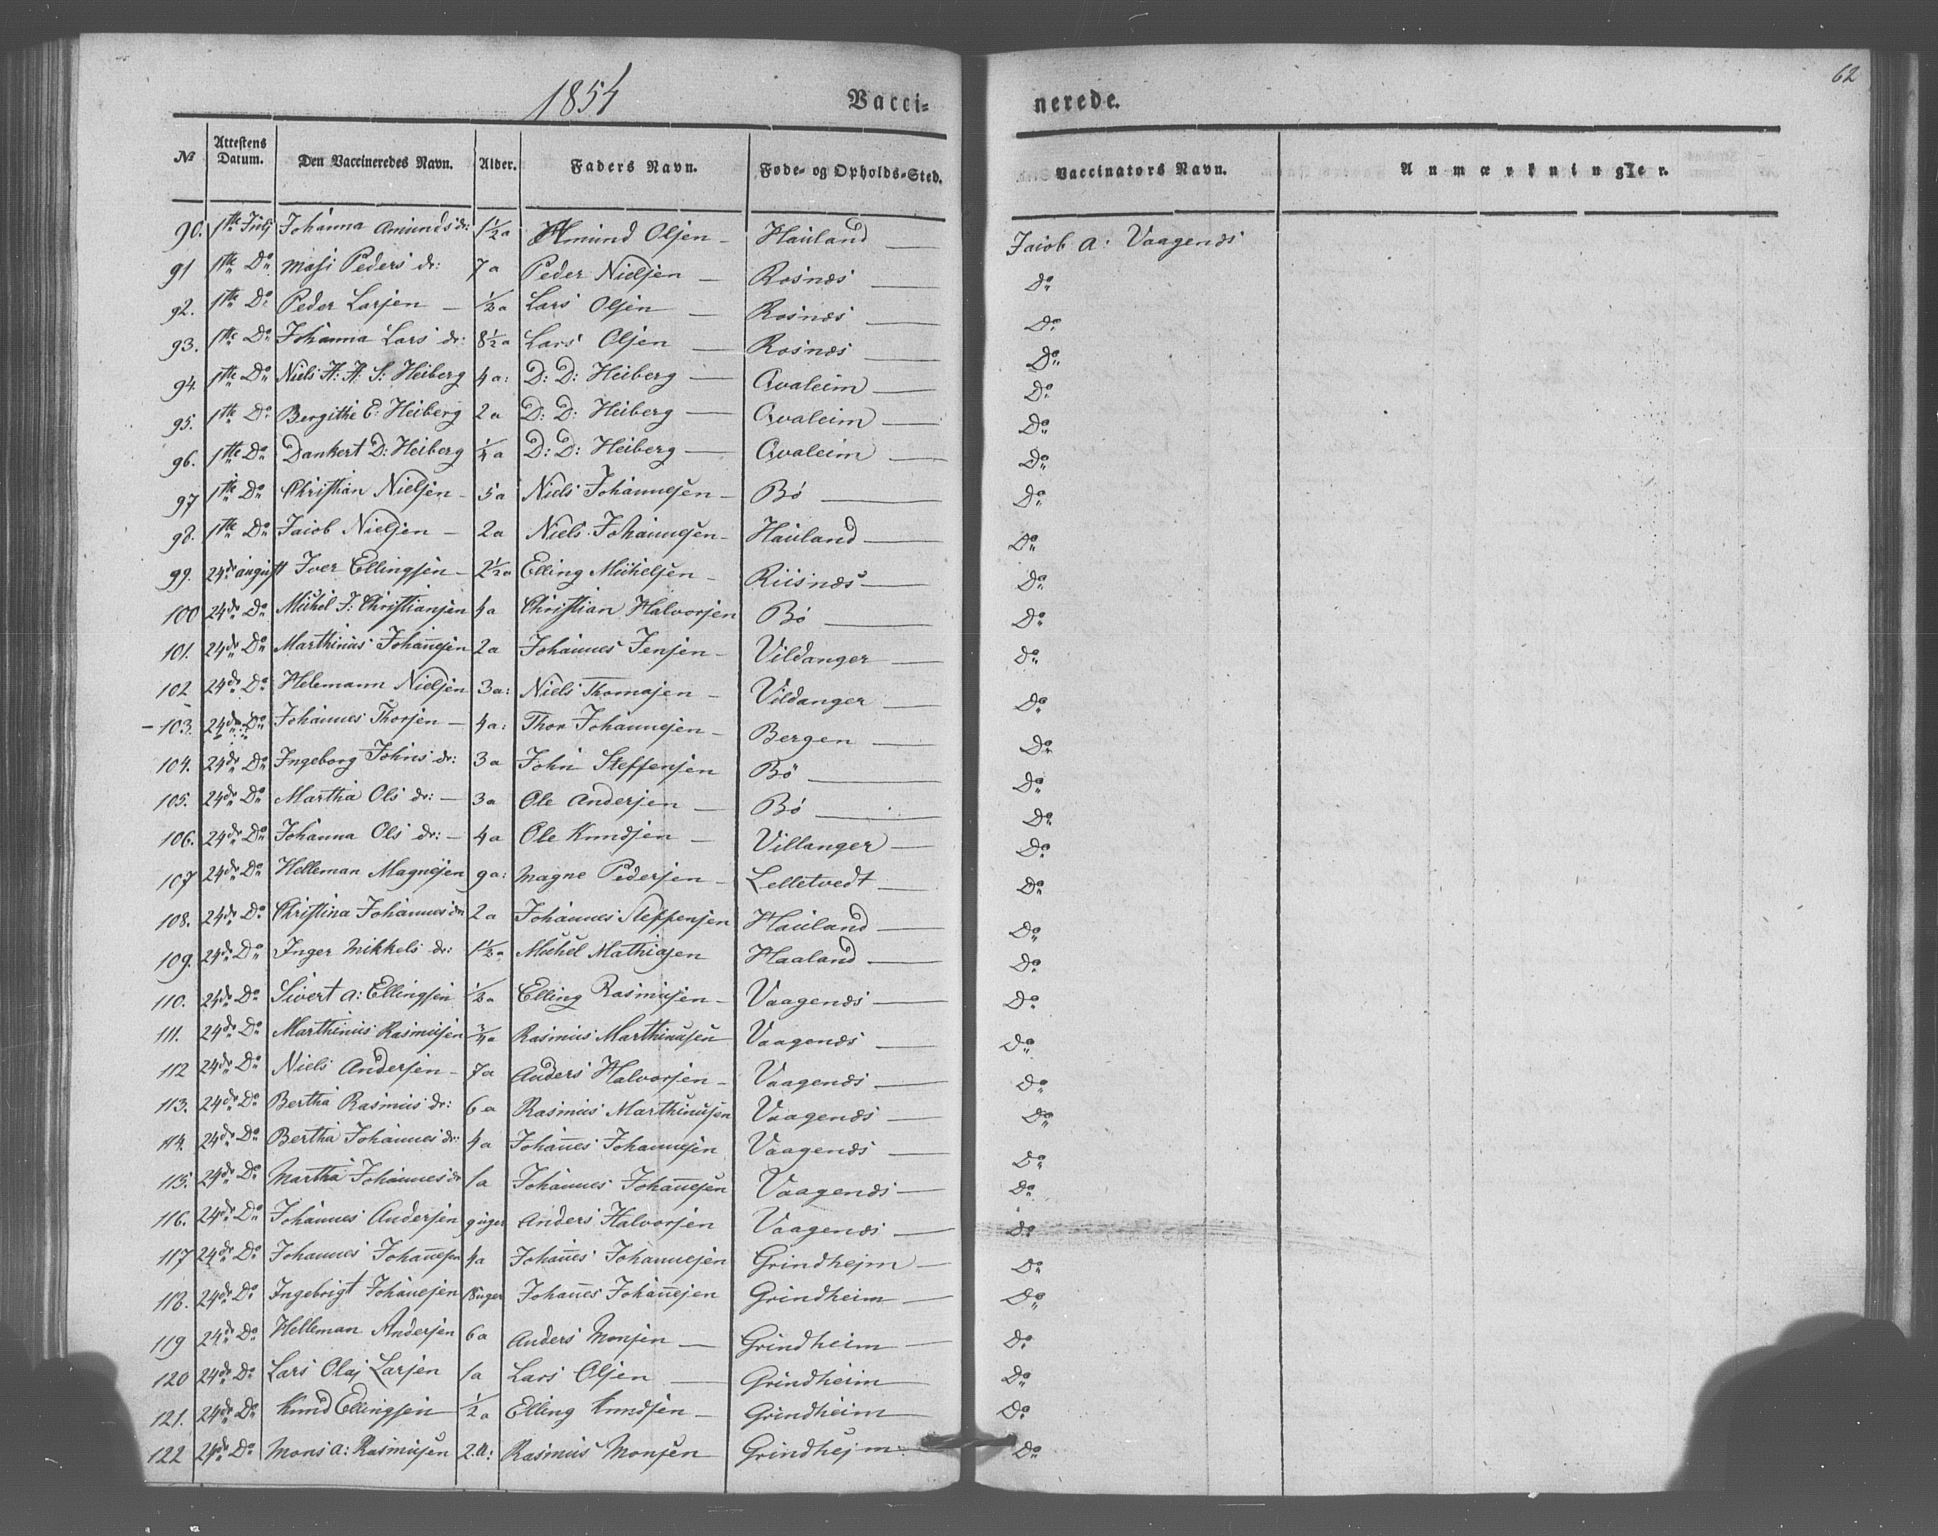 1854
Vaccinerede.
62
№ Attestens Datum. Den Vaccineredes Navn. Alder. Faders Navn. Føde- og Opholds-Sted. Vaccinators Navn. Anmærkninger.
90. 1ste Julj Johanna Amunds dr: 1½ a Amund Olsen – Hauland — Jacob A: Vaagenæs
91 1ste Do Masi Peders dr: 7 a Peder Nielsen — Rosnæs — Do
92. 1ste Do Peder Larsen — ½ a Lars Olsen — Rosnæs — Do
93. 1ste Do Johanna Lars dr: 8½ a Lars Olsen — Rosnæs — Do
94. 1ste Do Niels A: A: S: Heiberg 4 a: D: D: Heiberg — Qvaleim — Do
95. 1ste Do Bergithe E: Heiberg 2 a D: D: Heiberg — Qvaleim — Do
96. 1ste Do Dankert D: Heiberg ¼ a D: D: Heiberg — Qvaleim — Do
97 1ste Do Christian Nielsen – 5 a Niels Johannesen – Bö — Do
98. 1ste Do Jacob Nielsen – 2 a Niels Johannesen – Hauland — Do
99. 24de august Iver Ellingsen – 2½ a Elling Michelsen – Riisnæs — Do
100 24de Do Michel J: Christiansen 4 a Christian Halvorsen Bö — Do
101. 24de Do Marthinus Johannesen 2 a Johannes Jensen – Vildanger — Do
102 24de Do Helemann Nielsen 3 a: Niels Thomasen – Vildanger — Do
– 103. 24de Do Johannes Thorsen – 4 a: Thor Johannesen – Bergen — Do
104. 24de Do Ingeborg Johns dr: 3 a John Steffensen Bö — Do
105. 24de Do Martha Ols dr: – 3 a Ole Andersen — Bö — Do
106. 24de Do Johanna Ols dr: – 4 a Ole Knudsen — Villanger — Do
107 24de Do Helleman Magnesen 9 a: Magne Pedersen – Lelletvedt — Do
108. 24de Do Christina Johannes dr 2 a Johannes Steffensen Hauland — Do
109. 24de Do Inger Mikkels dr: 1½ a Michel Mathiasen Haaland — Do
110. 24de Do Sivert A: Ellingsen ½ a Elling Rasmusen – Vaagenæs — Do
111. 24de Do Marthinus Rasmusen ¾ a Rasmus Marthinusen Vaagenæs — Do
112 24de Do Niels Andersen – 7 a Anders Halvorsen – Vaagenæs — Do
113. 24de Do Bertha Rasmus dr: 6 a Rasmus Marthinusen Vaagenæs — Do
114. 24de Do Bertha Johannes dr: 4 a Johannes Johannesen Vaagenæs — Do
115. 24de Do Martha Johannes dr 1 a Johannes Johannesen Vaagenæs — Do
116. 24de Do Johannes Andersen 9 uger Anders Halvorsen Vaagenæs — Do
117 24de Do Johannes Johannesen 4 a Johannes Johannesen Grindhejm — Do
118. 24de Do Ingebrigt Johannesen 18 uger Johannes Johannesen Grindheim — Do
119 24de Do Helleman Andersen 6 a Anders Monsen — Grindheim — Do
120 24de Do Lars Olaj Larsen 1 a Lars Olsen — Grindheim — Do
121. 24de Do Knud Ellingsen ½ a Elling Knudsen – Grindheim — Do
122 24de Do Mons A: Rasmusen 2. A: Rasmus Monsen Grindhejm. Do